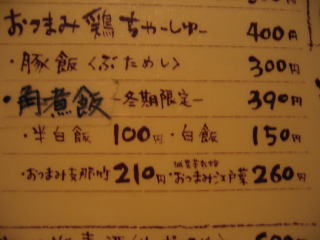 おつまみ鶏ちゃーしゅー 400円
・豚飯〈ぶためし〉 300円
・角煮飯 -冬期限定- 390円
・半白飯 100円 ・白飯 150円
・おつまみ支那竹 210円 ・おつまみ江戸菜 260円